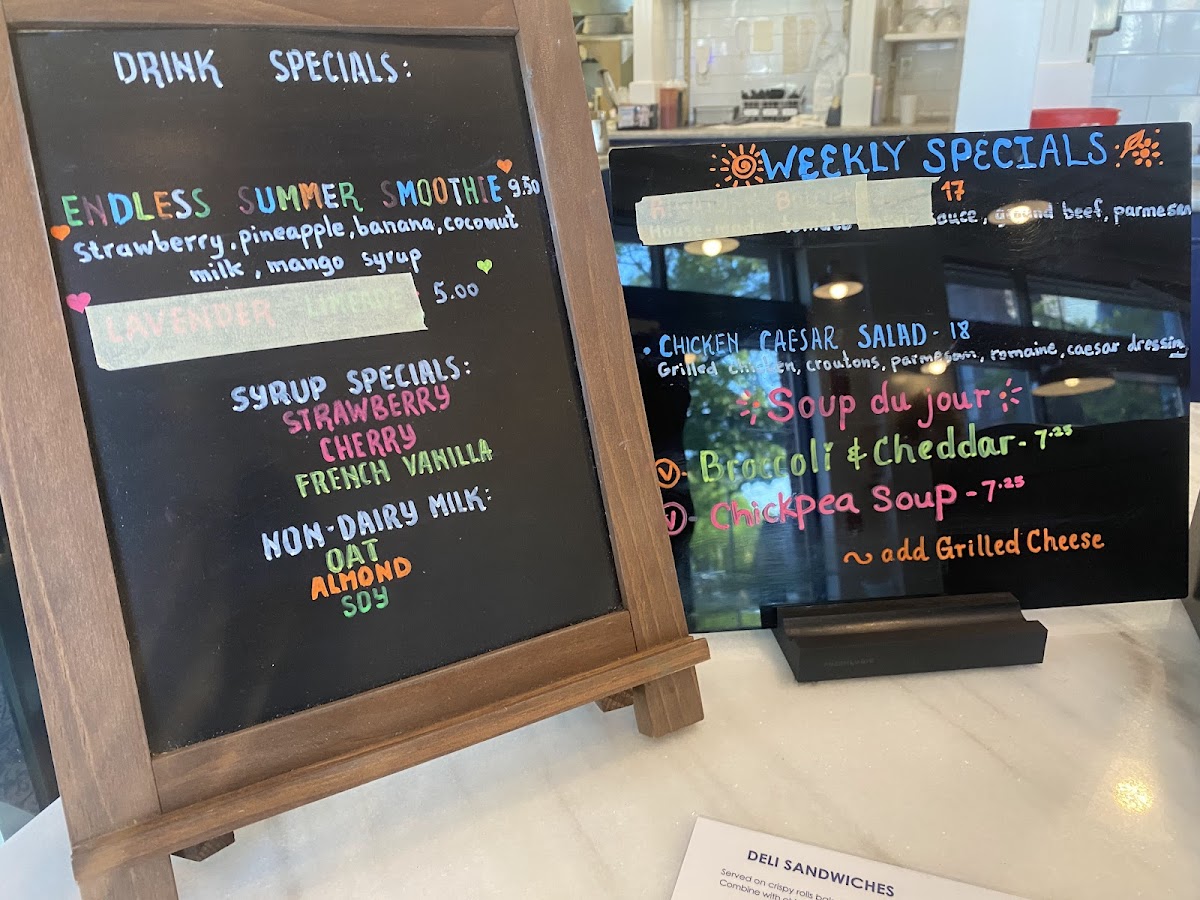 DRINK SPECIALS:
ENDLESS SUMMER SMOOTHIE 9.50
Strawberry, pineapple, banana, coconut
milk, mango syrup
LAVENDER 5.00
SYRUP SPECIALS:
STRAWBERRY
CHERRY
FRENCH VANILLA
NON-DAIRY MILK:
OAT
ALMOND
SOY
WEEKLY SPECIALS
17
House-made tomato sauce, ground beef, parmesan
• CHICKEN CAESAR SALAD - 18
Grilled chicken, croutons, parmesan, romaine, caesar dressing
Soup du jour
V - Broccoli & Cheddar - 7.25
V - Chickpea Soup - 7.25
~ add Grilled Cheese
DELI SANDWICHES
Served on crispy rolls
Combine with